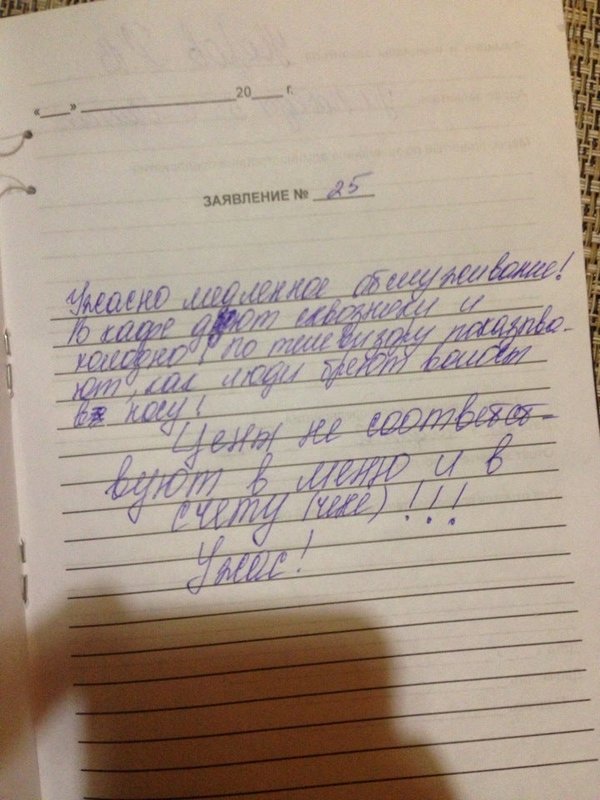 «__» __________ 20__ г.
ЗАЯВЛЕНИЕ № 25
Ужасно медленное обслуживание!
В кафе дуют сквозняки и
холодно! По телевизору показыва-
ют, как люди бреют волосы
в носу!
Цены не соответст-
вуют в меню и в
счету (чеке)!!!
Ужас!